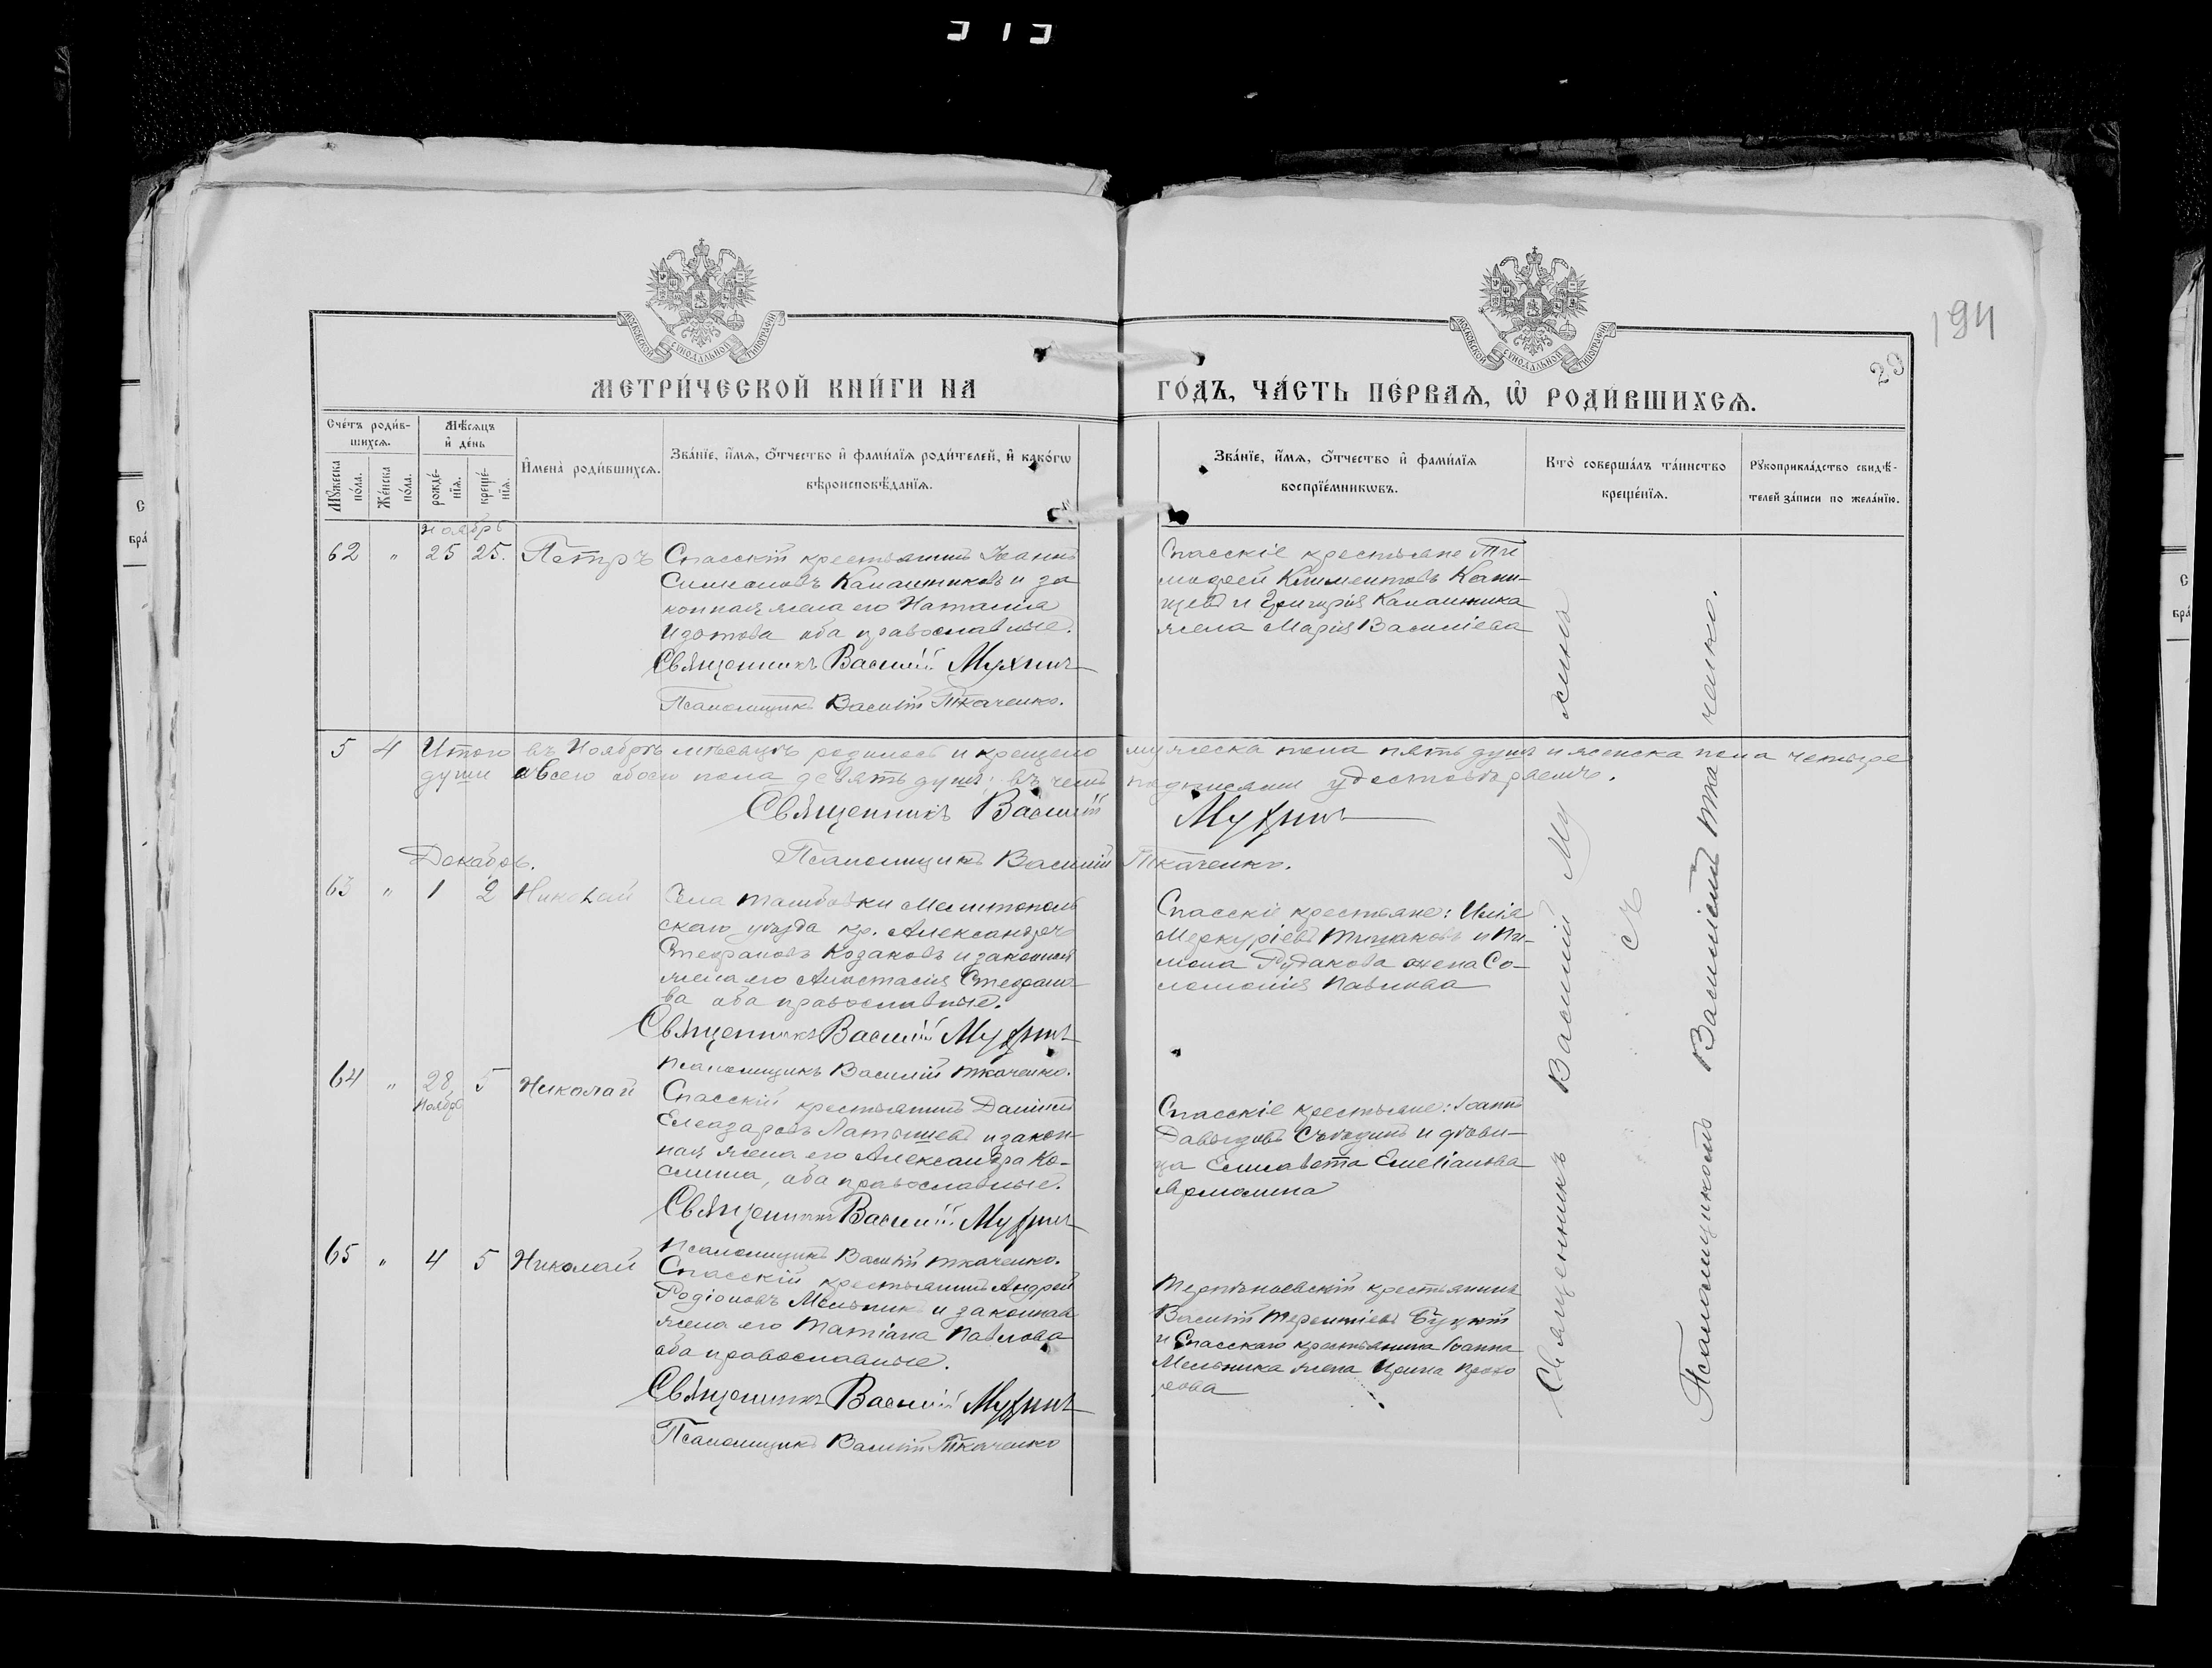 194
29
МОСКОВСКОЙ СѴНОДАЛЬНОЙ ТИПОГРАФІИ
МОСКОВСКОЙ СѴНОДАЛЬНОЙ ТИПОГРАФІИ
МЕТРИ́ЧЕСКОЙ КНИ́ГИ НА ГО́ДЪ, ЧА́СТЬ ПЕ́РВАѦ, Ѡ҆ РОДИ́ВШИХСѦ.
Сче́тъ роди́в-
шихсѧ.
Мꙋ́жеска по́ла.
Же́нска по́ла.
Мѣ́сѧцъ
и҆ де́нь
рожде́-
нїѧ.
креще́-
нїѧ.
И҆мена̀ роди́вшихсѧ.
Зва́нїе, и҆́мѧ, ѻ҆́тчество и҆ фами́лїѧ роди́телей, и҆ како́гѡ
вѣроисповѣ́данїѧ.
Зва́нїе, и҆́мѧ, ѻ҆́тчество и҆ фами́лїѧ
воспрїе́мникѡвъ.
Кто̀ соверша́лъ та́инство
креще́нїѧ.
Рꙋкоприкла́дство свидѣ́-
телей за́писи по жела́нїю.
Ноябрь
62 " 25 25. Петръ
Спасскій крестьянинъ Іоаннъ
Симоновъ Калашниковъ и за
конная жена его Наталія
Изотова оба православные.
Священникъ Василій Мухинъ
Псаломщикъ Василій Ткаченко.
Спасскіе крестьяне Ти
мофей Климентовъ
и Григорія Калашника
жена Марія Василіева
5 4 Итого въ Ноябрѣ мѣсяцѣ родилось и крещено мужеска пола пять душъ и женска пола четыре
души а всего обоего пола девять душъ; въ чемъ подписами удостовѣряемъ.
Священникъ Василій Мухинъ
Декабрь.
Псаломщикъ Василій Ткаченко.
63 " 1 2 Николай
Села Тамбовки Мелитополь
скаго уѣзда кр. Александръ
Стефановъ Козаковъ и законная
жена его Анастасія Стефано
ва оба православные.
Священникъ Василій Мухинъ
Псаломщикъ Василій Ткаченко.
Спасскіе крестьяне: Илія
Меркуріевъ и Пи-
мена Рудакова жена Со-
ломонія Павлова
64 " 28 5 Николай
Ноябрь
Спасскій крестьянинъ Даніилъ
Елеазаровъ Латышевъ и закон-
ная жена его Александра Ко-
смина, оба православные.
Священникъ Василій Мухинъ
Псаломщикъ Василій Ткаченко.
Спасскіе крестьяне: Іоаннъ
Давыдовъ и дѣви-
ца Елисавета Емеліанова
65 " 4 5 Николай
Спасскій крестьянинъ Андрей
Родіоновъ Мельникъ и законная
жена его Татіана Павлова
оба православные.
Священникъ Василій Мухинъ
Псаломщикъ Василій Ткаченко
Терпѣніевскій крестьянинъ
Василій Терентіевъ
и Спасскаго крестьянина Іоанна
Мельника жена Ирина Прохо
рова
Священникъ Василій Мухинъ
съ
Псаломщикомъ Василіемъ Ткаченко.